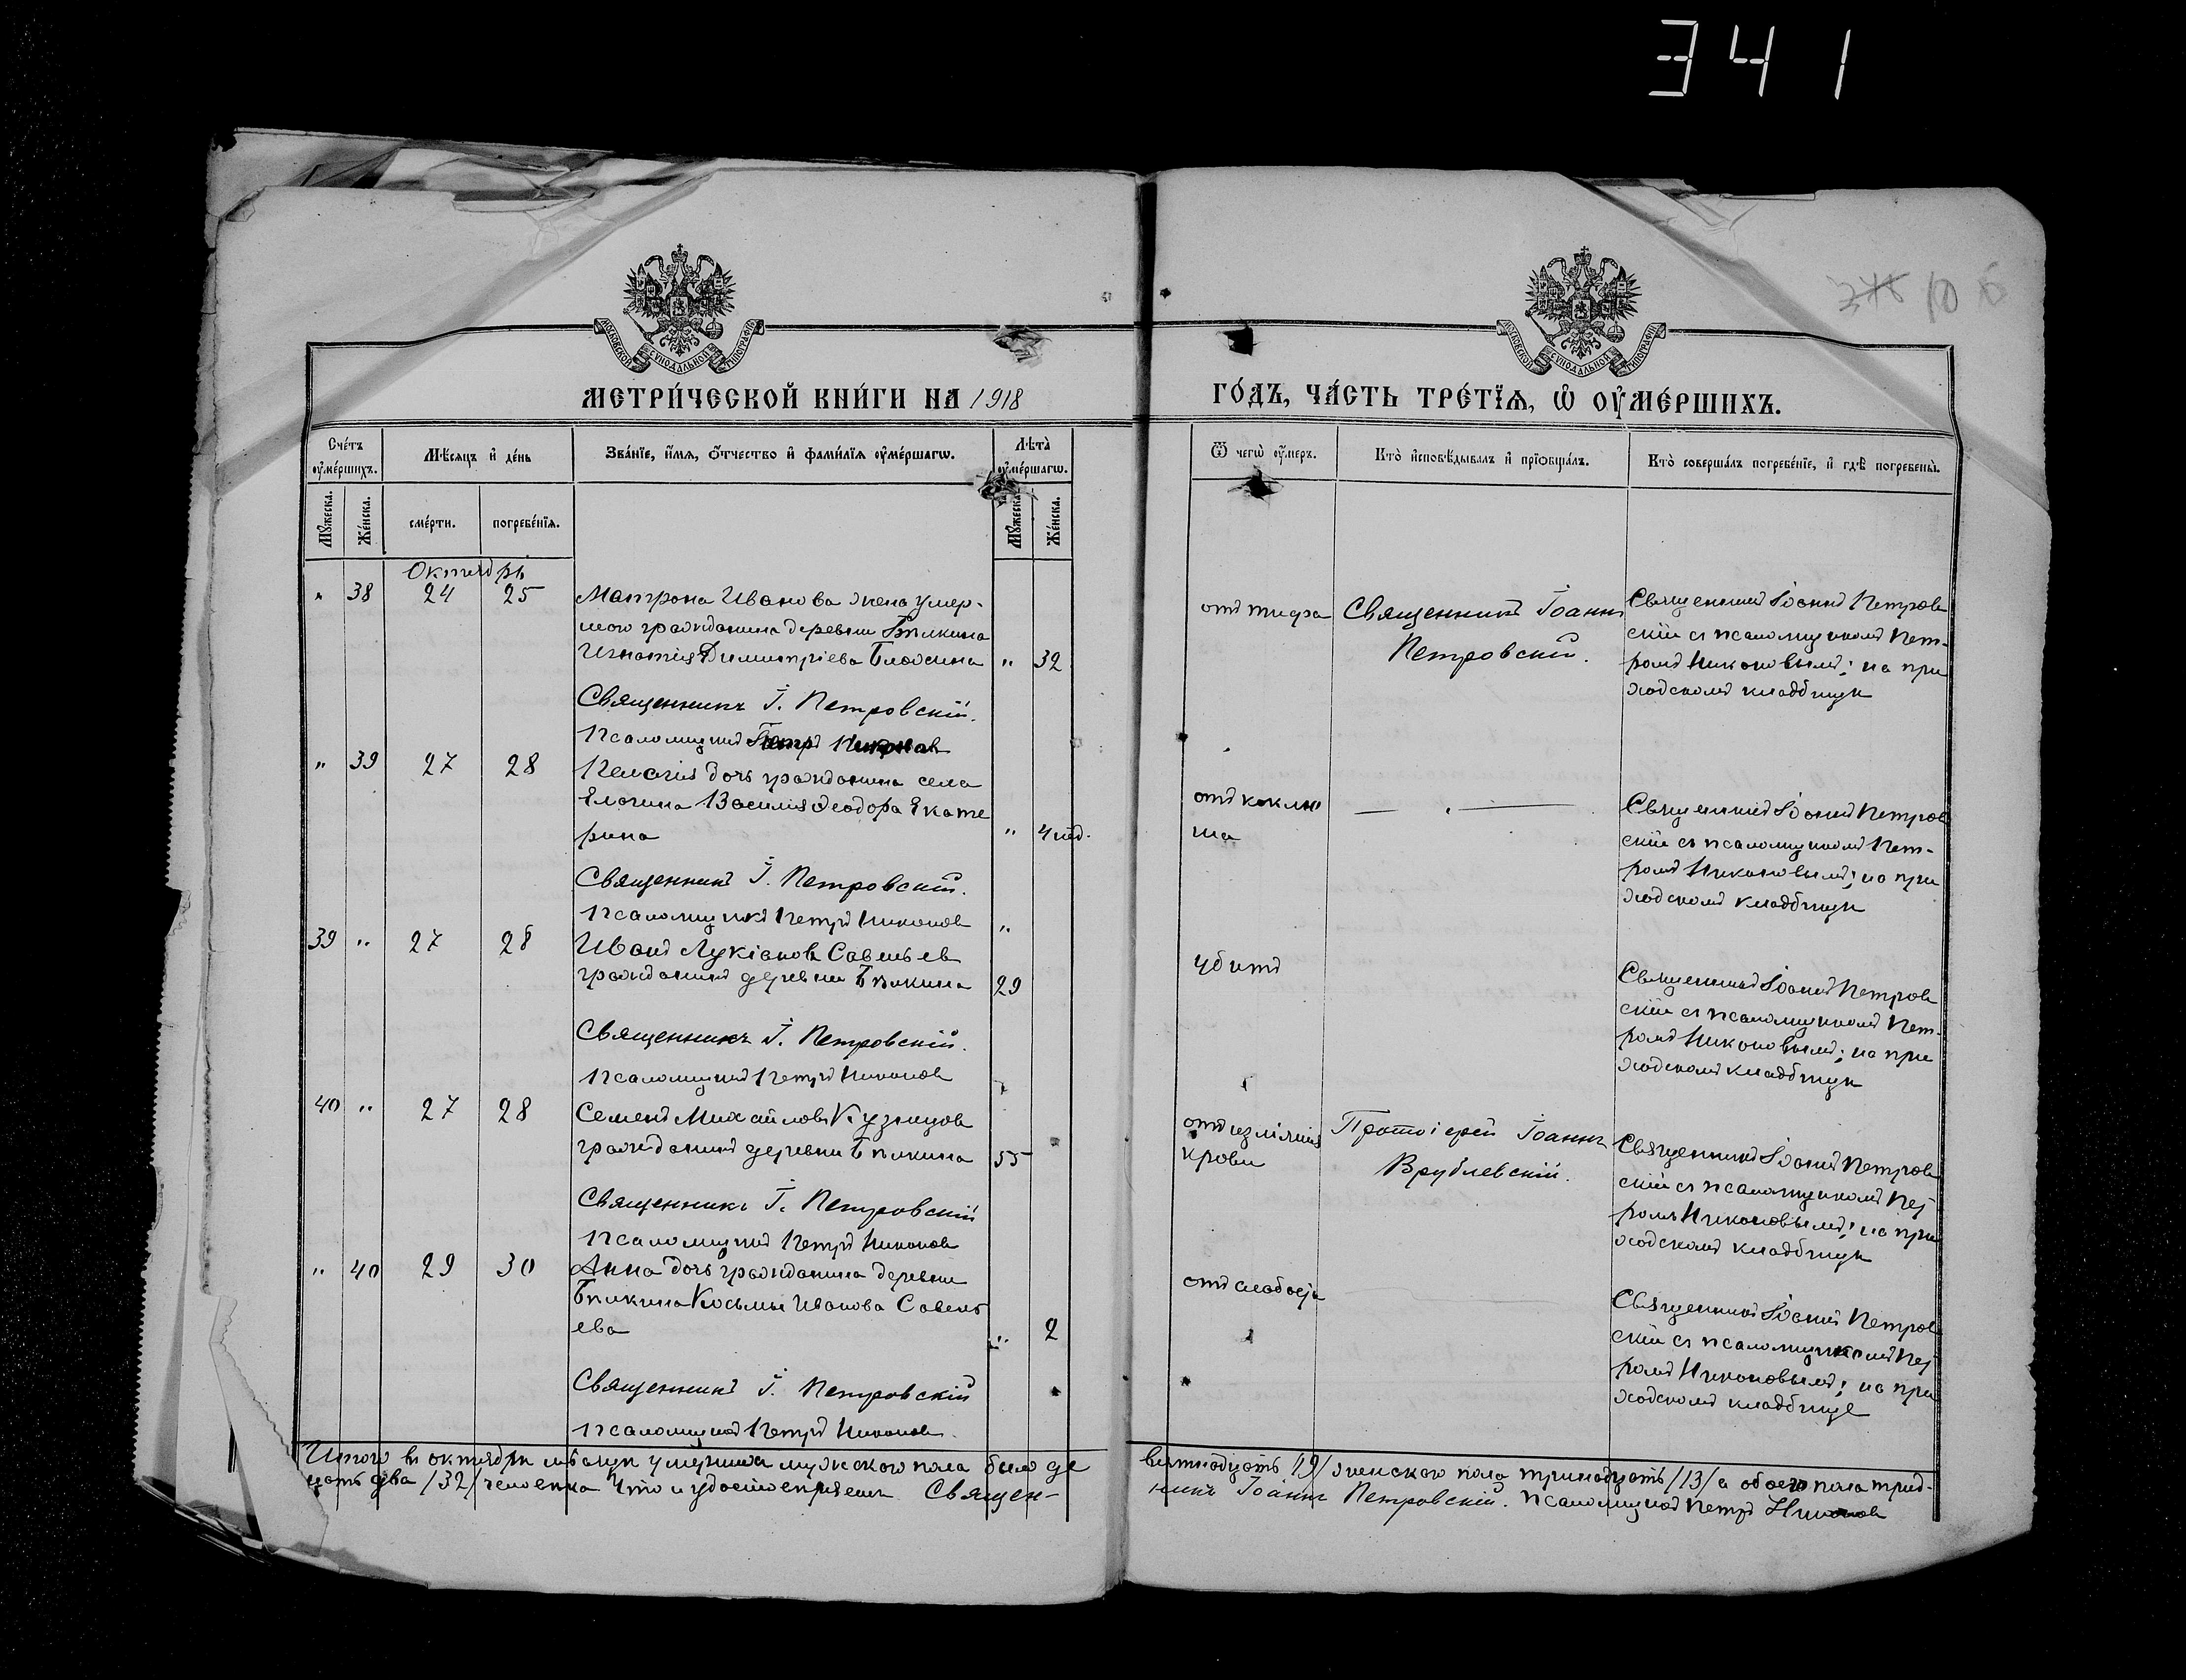 341
МЕТРИ́ЧЕСКОЙ КНИ́ГИ НА 1918
ГО́ДЪ, ЧА́СТЬ ТРЕ́ТЇѦ, Ѡ҆ ОУ҆МЕ́РШИХЪ.
МОСКОВСКОЙ СѴНОДАЛЬНОЙ ТИПОГРАФІИ
МОСКОВСКОЙ СѴНОДАЛЬНОЙ ТИПОГРАФІИ
Сче́тъ оу҆ме́ршихъ.
Мѣ́сяцъ и҆ де́нь
Зва́нїе, и҆́мя, ѻ҆́тчество и҆ фами́лїя оу҆ме́ршагѡ.
Лѣ́та оу҆ме́ршагѡ.
Ѿ чегѡ̀ оу҆́меръ.
Кто̀ и҆сповѣ́дывалъ и҆ прїѡбща́лъ.
Кто̀ соверша́лъ погребе́нїе, и҆ гдѣ̀ погребены̀.
Мꙋ́жеска.
Же́нска.
сме́рти.
погребе́нїя.
Мꙋ́жеска.
Же́нска.
Октябрь
" 38 24 25 Матрона Иванова жена умер-
шого гражданина деревни Бѣлкина
Игнатія Димитріева " 32
отъ тифа
Священникъ Іоаннъ
Петровскій.
Священникъ Іоаннъ Петров
скій съ псаломщикомъ Пет-
ромъ Никоновымъ; на при
ходскомъ кладбищѣ
Священникъ І. Петровскій.
Псаломщикъ Петръ Никонов
" 39 27 28 Пелагія дочь гражданина села
Василія Феодора Екате
рина " 4 нед.
отъ коклю
ша
Священникъ Іоаннъ Петров
скій съ псаломщикомъ Пет-
ромъ Никоновымъ; на при
ходскомъ кладбищѣ
Священникъ І. Петровскій.
Псаломщикъ Петръ Никонов
39 " 27 28 Иванъ Лукіанов Савельев
гражданинъ деревни Бѣлкина 29
убитъ
Священникъ Іоаннъ Петров
скій съ псаломщикомъ Пет-
ромъ Никоновымъ; на при
ходскомъ кладбищѣ
Священникъ І. Петровскій.
Псаломщикъ Петръ Никонов
40 " 27 28 Семенъ Михайловъ Кузнецов
гражданинъ деревни Бѣлкина 55
отъ изліянія
крови
Протоіерей Іоаннъ
Врублевскій.
Священникъ Іоаннъ Петров
скій съ псаломщикомъ Пет
ромъ Никоновымъ; на при
ходскомъ кладбищѣ
Священникъ І. Петровскій
Псаломщикъ Петръ Никонов
" 40 29 30 Анна дочь гражданина деревни
Бѣлкина Косьмы Иванова Савель
ева " 2
отъ слабости
Священникъ Іоаннъ Петров
скій съ псаломщикомъ Пет
ромъ Никоновымъ; на при
ходскомъ кладбище
Священникъ І. Петровскій
Псаломщикъ Петръ Никонов
Итого въ октябрѣ мѣсяцѣ умершихъ мужского пола было де
вятнадцать /19/ женского пола тринадцать /13/ а обоего пола трид-
цать два /32/ человека Что и удостоверяем Священ-
никъ Іоаннъ Петровскій. Псаломщикъ Петръ Никонов